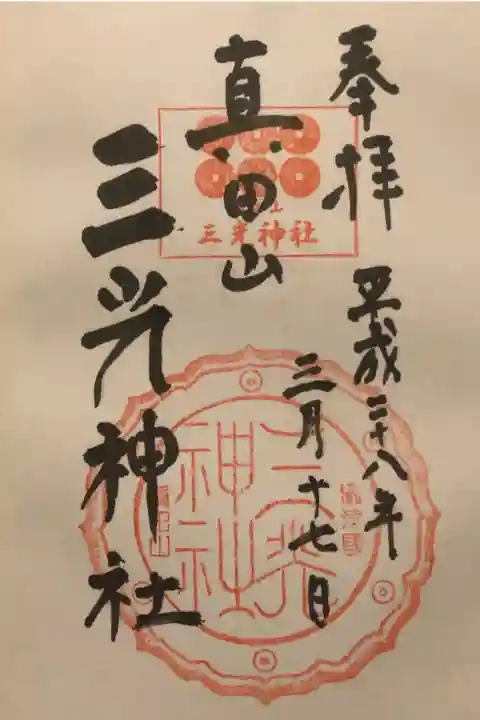 奉拝
平成二十八年
三月十七日
真田山
三光神社
三光神社
三光神社